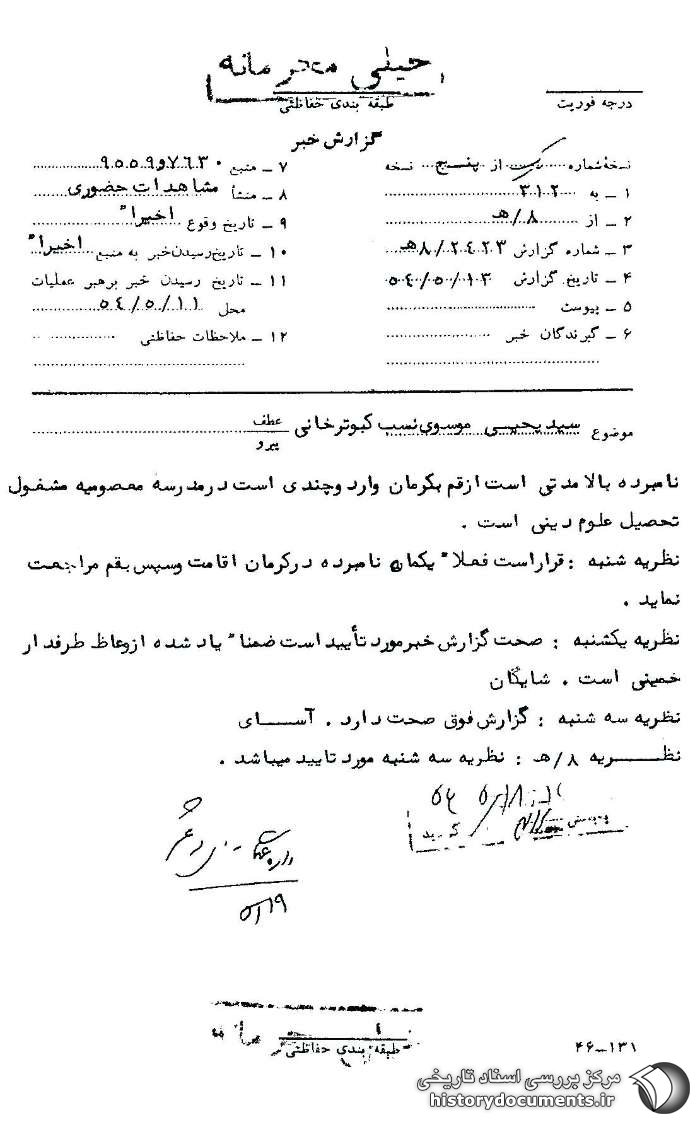 خیلی محرمانه
طبقه بندی حفاظتی
درجه فوریت
گزارش خبر
نسخهٔ شماره یک از پنج نسخه
۱ – به ۳۱۲
۲ – از ۸/هـ
۳ – شماره گزارش ۸/۲۴۲۳هـ
۴ – تاریخ گزارش ۵۴/۵/۱۳
۵ – پیوست
۶ – گیرندگان خبر
۷ – منبع ۷۶۳۰و۹۵۵۹
۸ – منشأ مشاهدات حضوری
۹ – تاریخ وقوع اخیرا"
۱۰ – تاریخ رسیدن خبر به منبع اخیرا"
۱۱ – تاریخ رسیدن خبر برهبر عملیات
محل ۵۴/۵/۱۱
۱۲ – ملاحظات حفاظتی
موضوع سیدیحیی موسوی نسب کبوترخانی
عطف
پیرو
نامبرده بالا مدتی است ازقم بکرمان وارد وچندی است درمدرسه معصومیه مشغول
تحصیل علوم دینی است .
نظریه شنبه : قراراست فعلا" یکماه نامبرده درکرمان اقامت وسپس بقم مراجعت
نماید .
نظریه یکشنبه : صحت گزارش خبرمورد تأیید است ضمنا" یاد شده ازوعاظ طرفدار
خمینی است . شایگان
نظریه سه شنبه : گزارش فوق صحت دارد . آسای
نظریه ۸/هـ : نظریه سه شنبه مورد تایید میباشد .
۵/۱۹
طبقه بندی حفاظتی
۴۶–۱۳۱
مرکز بررسی اسناد تاریخی
historydocuments.ir